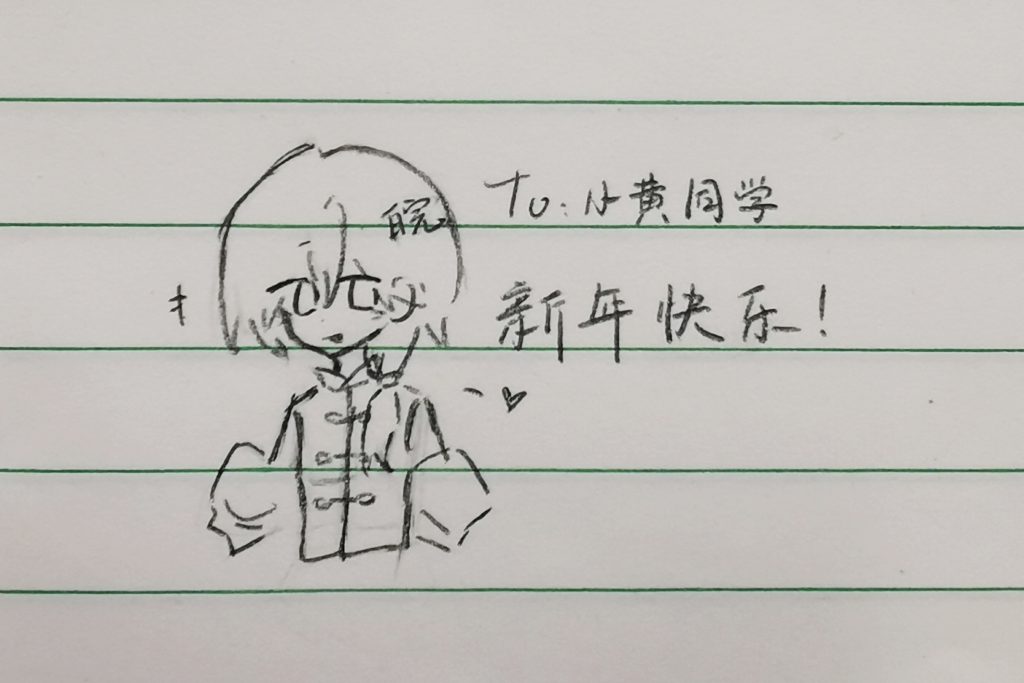 To: 小黄同学
皖
新年快乐!